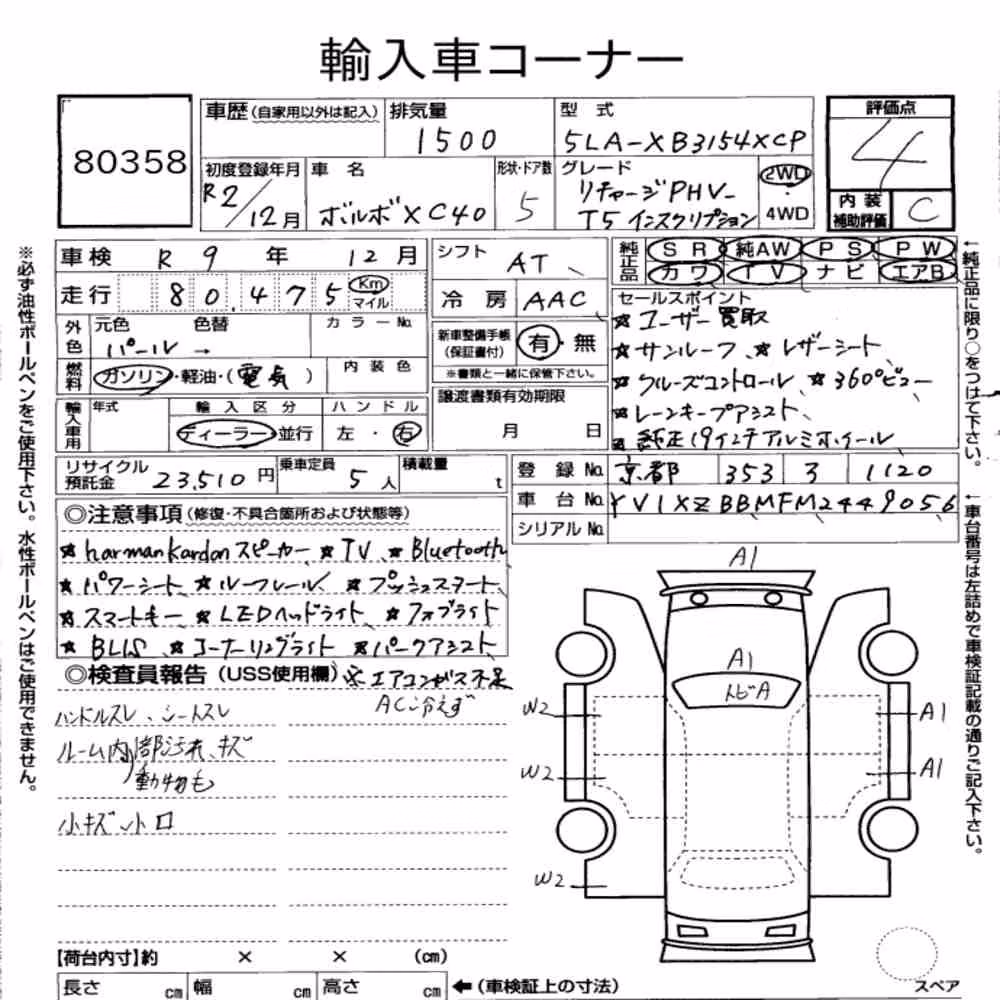 輸入車コーナー
80358
車歴(自家用以外は記入) 排気量 1500 型式 5LA-XB3154XCP
評価点 4
内装補助評価 C
初度登録年月 R2/12月 車名 ボルボXC40 形状・ドア数 5 グレード リチャージPHV T5 インスクリプション 2WD・4WD
車検 R 9 年 12 月
走行 80,475 Km マイル
外色 元色 色替 カラーNo.
パール →
燃料 ガソリン・軽油・(電気) 内装色
輸入車用 年式 輸入区分 ハンドル
ディーラー・並行 左・右
シフト AT
冷房 AAC
新車整備手帳(保証書付) 有・無
※書類と一緒に保管下さい。
譲渡書類有効期限
月 日
純正品 SR 純AW PS PW
カワ TV ナビ エアB
セールスポイント
★ユーザー買取
★サンルーフ ★レザーシート
★クルーズコントロール ★360°ビュー
★レーンキープアシスト
★純正19インチアルミホイール
リサイクル預託金 23,510円 乗車定員 5人 積載量 t
登録No. 京都 353 ヲ 1120
車台No. YV1XZBBMFM2449056
シリアルNo.
◎注意事項(修復・不具合箇所および状態等)
★harman kardonスピーカー ★TV ★Bluetooth
★パワーシート ★ルーフレール ★プッシュスタート
★スマートキー ★LEDヘッドライト ★フォグライト
★BLIS ★コーナーリングライト ★パークアシスト
◎検査員報告(USS使用欄) ※エアコンガス不足
AC冷えず
ハンドルスレ、シートスレ
ルーム内部汚れ、キズ
動物毛
小キズ小凹
A1
A1
トビA
W2 A1
W2 A1
W2
スペア
【荷台内寸】約 × × (cm)
長さ cm 幅 cm 高さ cm ←(車検証上の寸法)
※必ず油性ボールペンをご使用下さい。水性ボールペンはご使用できません。
←純正品に限り○をつけて下さい。
←車台番号は左詰めで車検証記載の通りご記入下さい。